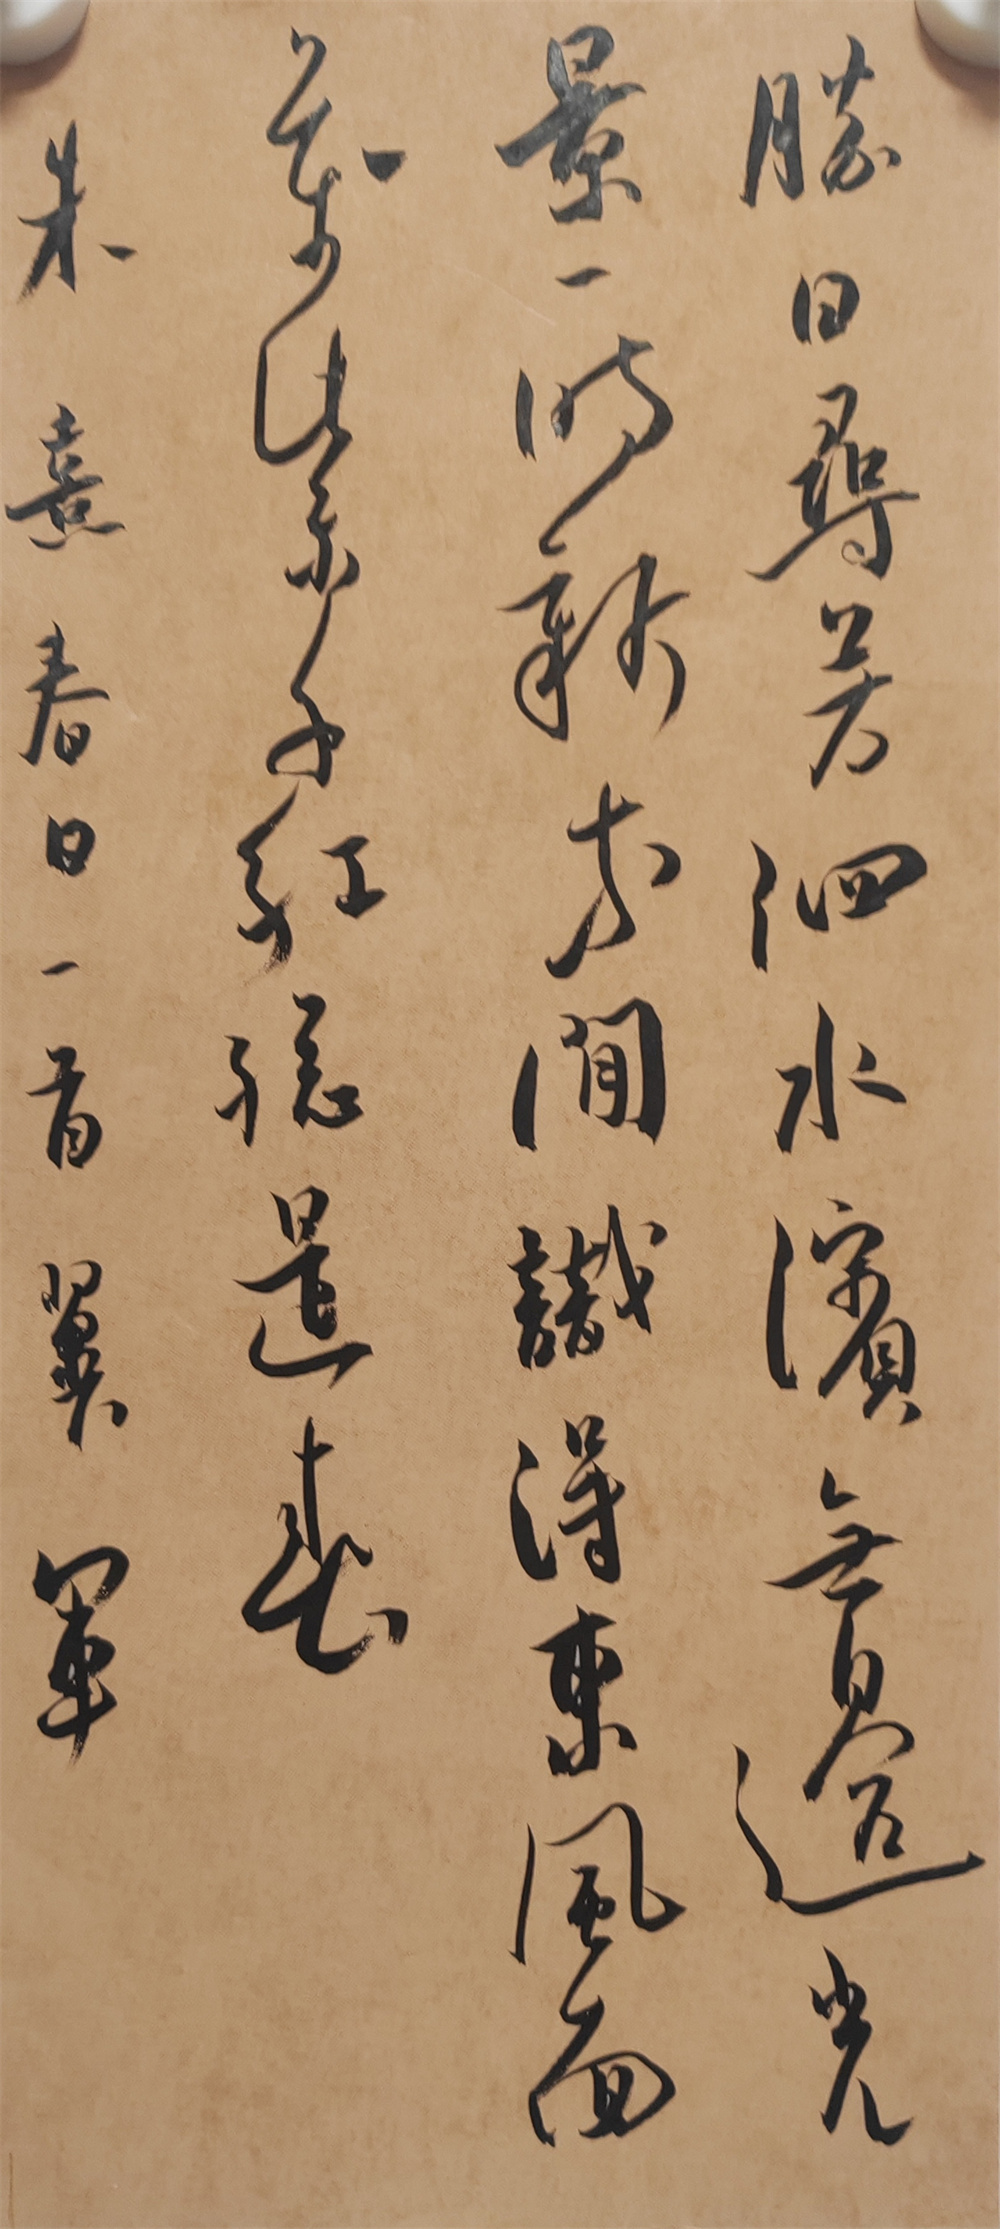 勝日尋芳泗水濱無邊光
景一時新等閒識得東風面
萬紫千紅總是春
朱熹春日一首翼軍